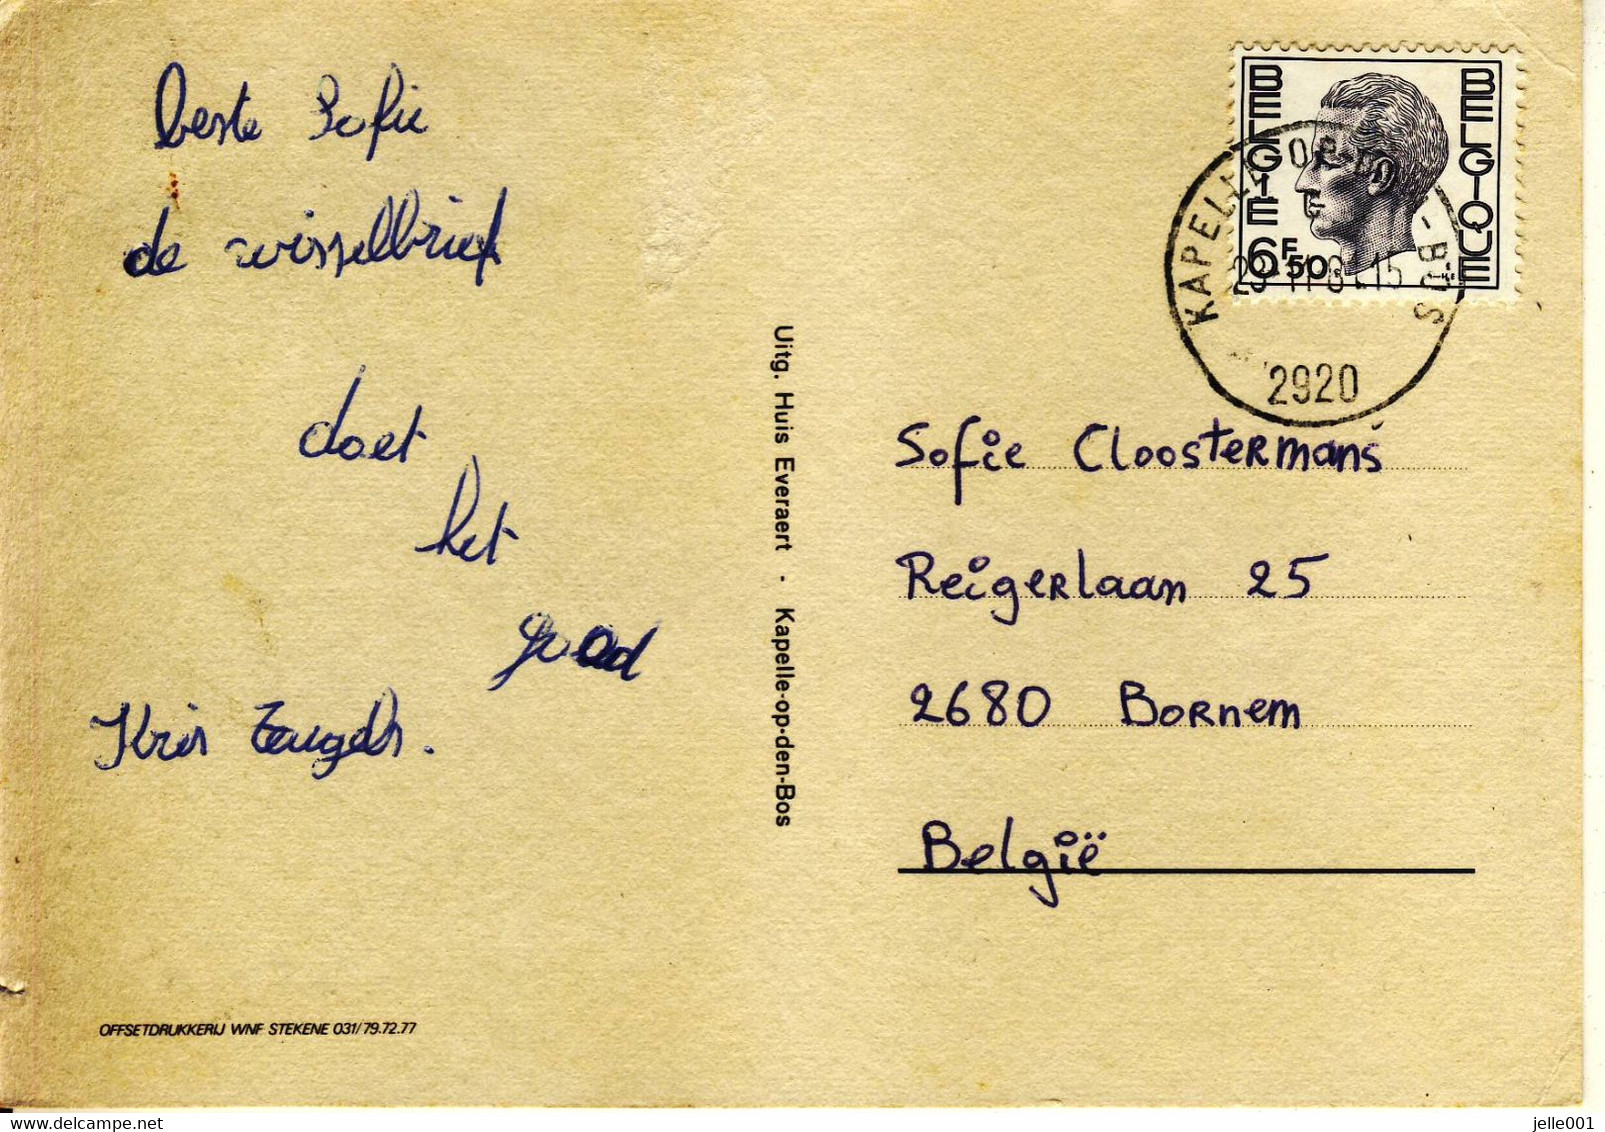 beste Sofie
de wisselbrief
doet
het
goed
Kris Teugels.
OFFSETDRUKKERIJ WNF STEKENE 031/79.72.77
Uitg. Huis Everaert - Kapelle-op-den-Bos
BELGIË
BELGIQUE
6F50
KAPELLE-OP-DEN-BOS
2920
Sofie Cloostermans
Reigerlaan 25
2680 Bornem
België
delcampe.net
jelle001